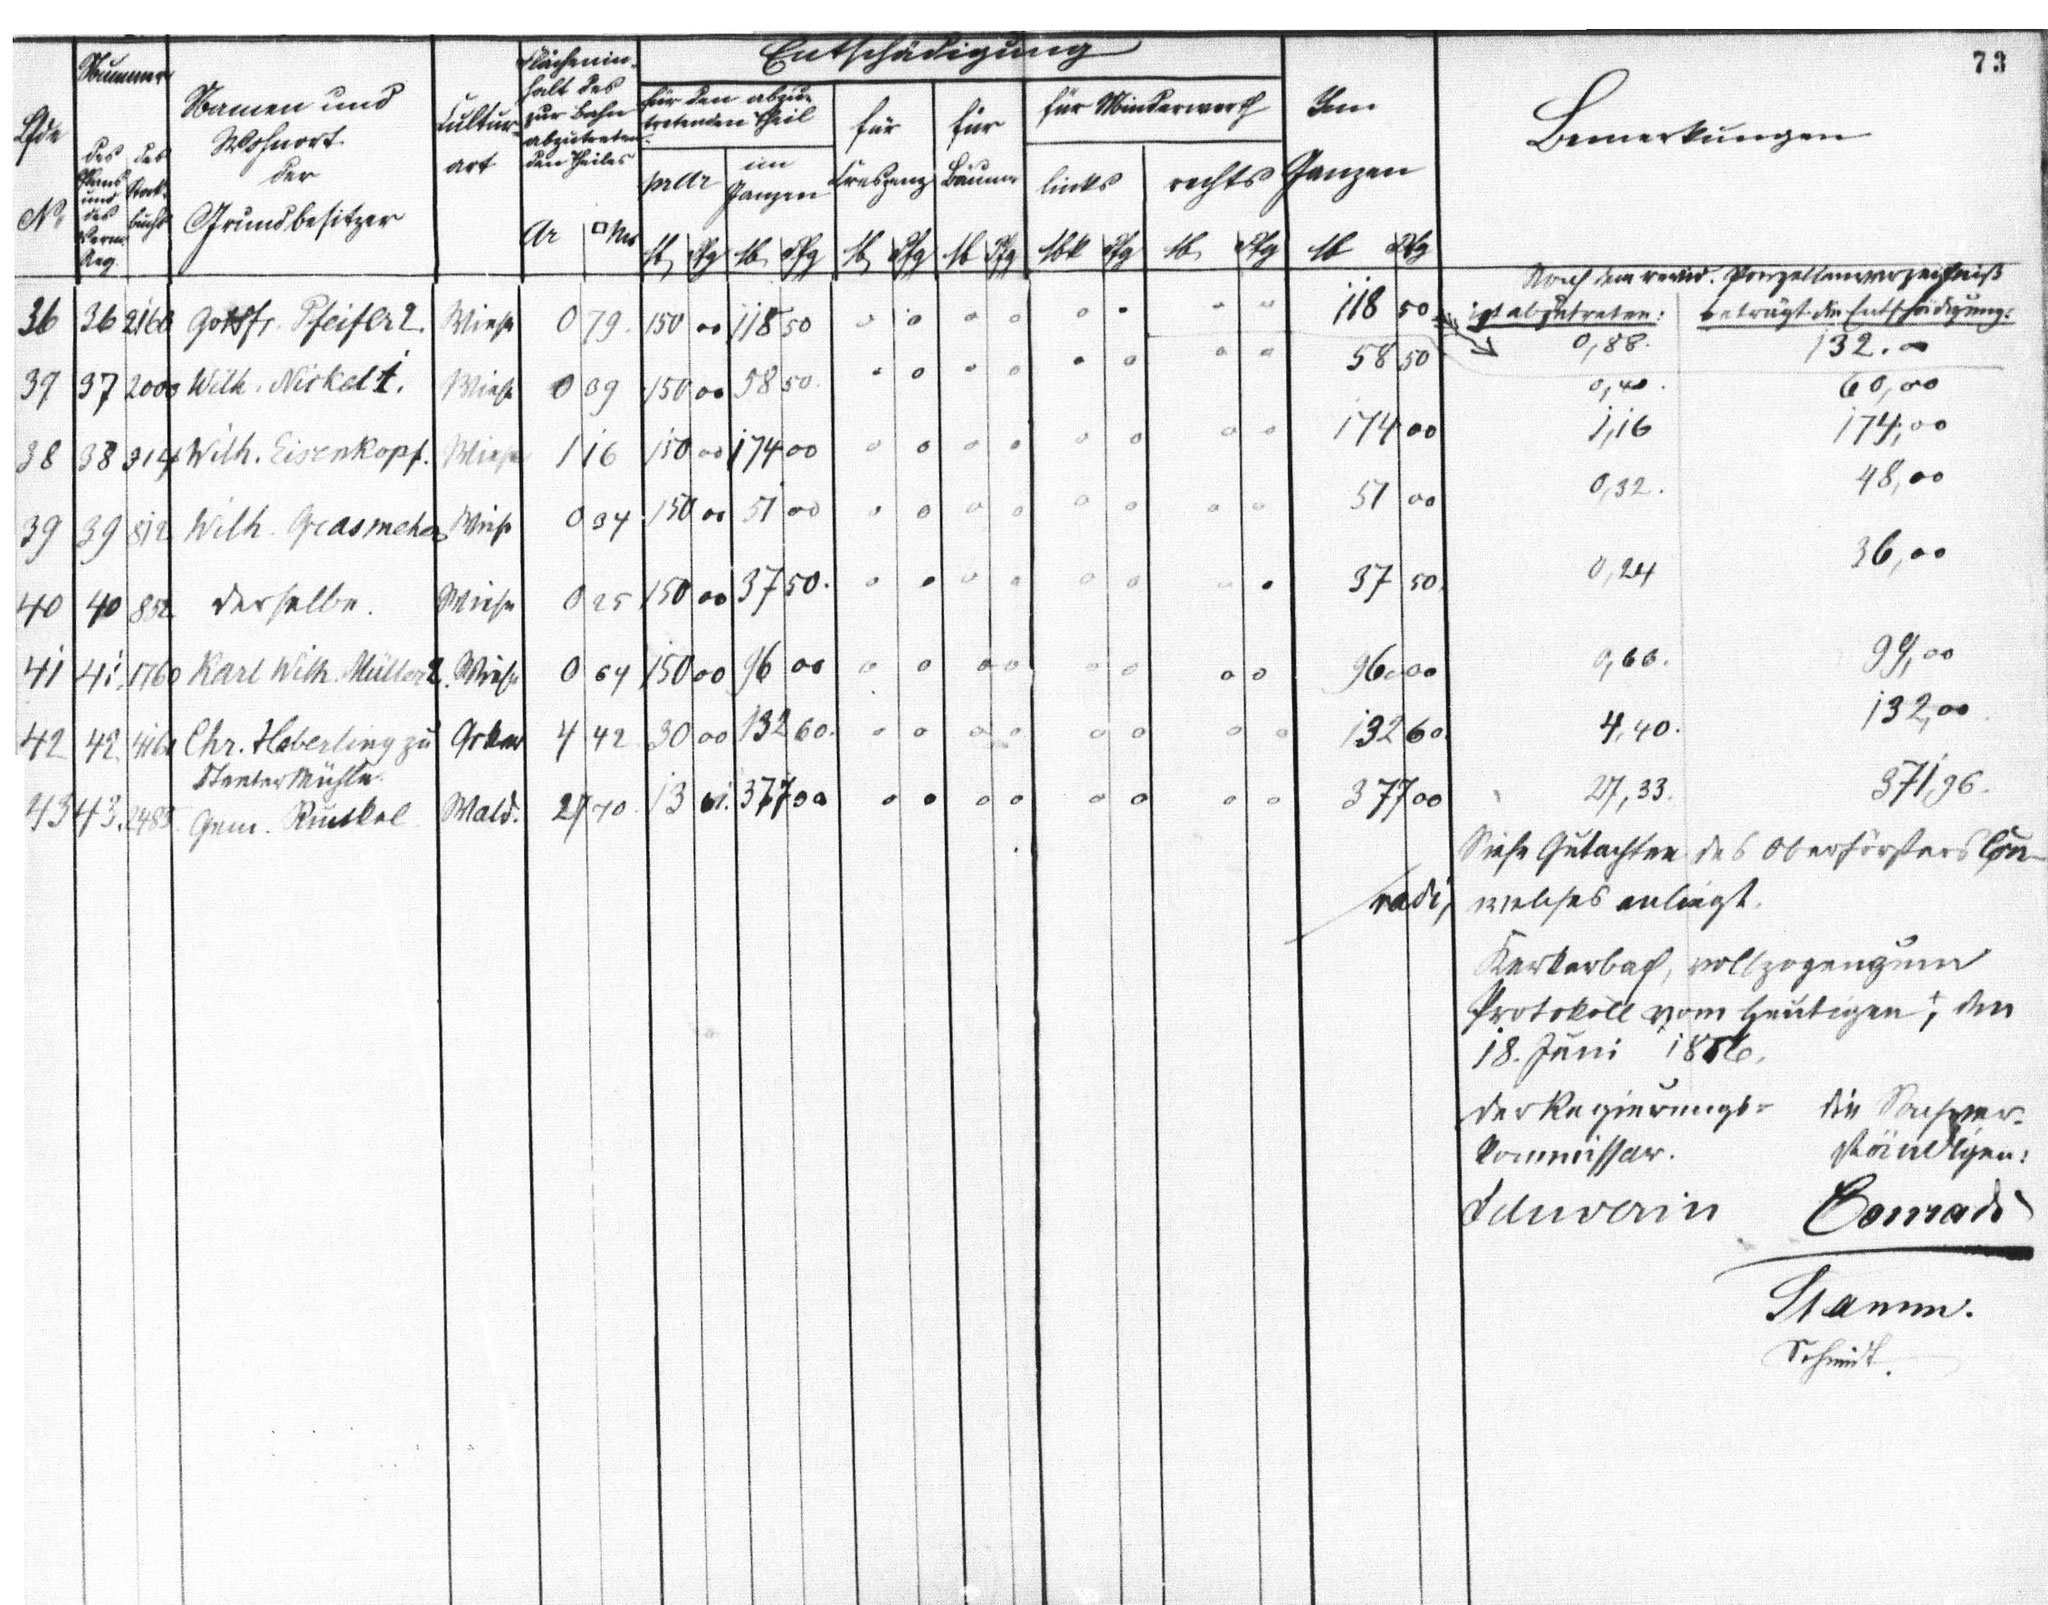 73
Entschädigung
Nummer
Lfde
No
des Plans und des Verm. Reg.
des Stockbuchs
Namen und
Wohnort
der
Grundbesitzer
Cultur-
art
Flächenin-
halt des
zur Bahn
abzutreten-
den Theiles
Ar □ Mtr
für den abzu-
tretenden Theil
pr Ar
im
Ganzen
für
Creszenz
für
Bäume
für Minderwerth
links rechts
Im
Ganzen
Bemerkungen
M Pfg M Pfg M Pfg M Pfg Mk Pfg M Pfg M Pfg
Nach dem revid. Parzellenverzeichniß
ist abzutreten: beträgt die Entschädigung:
36 36 2166 Gottfr. Pfeifer 2. Wiese 0 79. 150 00 118 50 0 0 0 0 0 0 0 0 118 50 0,88. 132.00
37 37 2000 Wilh. Nickel 1. Wiese 0 39 150 00 58 50. 0 0 0 0 0 0 0 0 58 50 0,40. 60,00
38 38 314 Wilh. Eisenkopf. Wiese 1 16 150 00 174 00 0 0 0 0 0 0 0 0 174 00 1,16 174,00
39 39 812 Wilh. Grasmeher Wiese 0 34 150 00 51 00 0 0 0 0 0 0 0 0 51 00 0,32. 48,00
40 40 852 derselbe. Wiese 0 25 150 00 37 50. 0 0 0 0 0 0 0 0 37 50. 0,24 36,00
41 41. 1760 Karl Wilh. Müller 2. Wiese 0 64 150 00 96 00 0 0 0 0 0 0 0 0 96 00 0,66. 99,00
42 42. Chr. Heberling zu Acker 4 42 30 00 132 60. 0 0 0 0 0 0 0 0 132 60. 4,40. 132,00
43 43. 2485 Gem. Runkel Wald. 27 70. 13 61. 377 00 0 0 0 0 0 0 0 0 377 00 27,33. 371,96.
Siehe Gutachten des Oberförsters Con-
radi, welches anliegt.
Kerkerbach, vollzogen zum
Protokoll vom heutigen, den
18. Juni 1886.
der Regierungs- die Sachver-
kommissar. ständigen:
Schwerin Conradi
Stamm.
Schmidt.